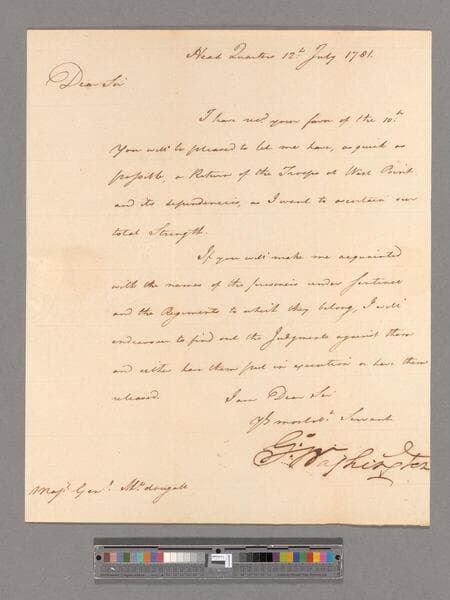 Head Quarters 12th July 1781.
Dear Sir
I have recd your favor of the 10th
You will be pleased to let me have, as quick as
possible, a Return of the Troops at West Point
and its dependencies, as I want to ascertain our
total Strength.
If you will make me acquainted
with the names of the prisoners under sentence
and the Regiments to which they belong, I will
endeavour to find out the Judgments against them
and either have them put in execution or have them
released.
I am Dear Sir
Yr most obt Servant
Go: Washington
Majr Genl McDougall